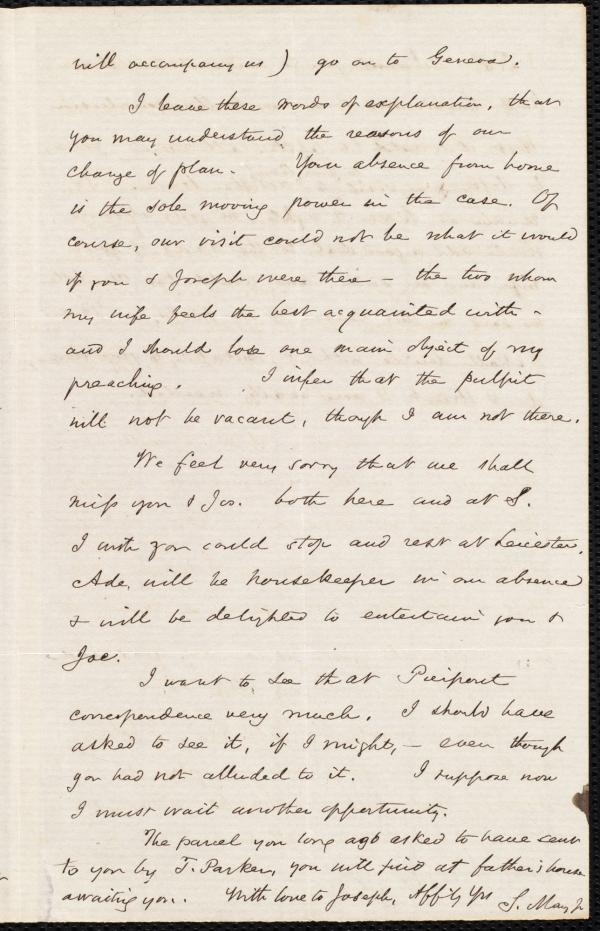 will accompany us) go on to Geneva.
I leave these words of explanation, that
you may understand the reasons of our
change of plan. Your absence from home
is the sole moving power in the case. Of
course, our visit could not be what it would
if you & Joseph were there – the two whom
my wife feels the best acquainted with –
and I should lose one main object of my
preaching. I infer that the pulpit
will not be vacant, though I am not there.
We feel very sorry that we shall
miss you & Jos. both here and at S.
I wish you could stop and rest at Leicester.
Ade. will be housekeeper in our absence
& will be delighted to entertain you &
Joe.
I want to see that Pierpont
correspondence very much. I should have
asked to see it, if I might, – even though
you had not alluded to it. I suppose now
I must wait another opportunity.
The parcel you long ago asked to have sent
to you by T. Parker, you will find at father's house
awaiting you. With love to Joseph, Affly Yrs S. May Jr